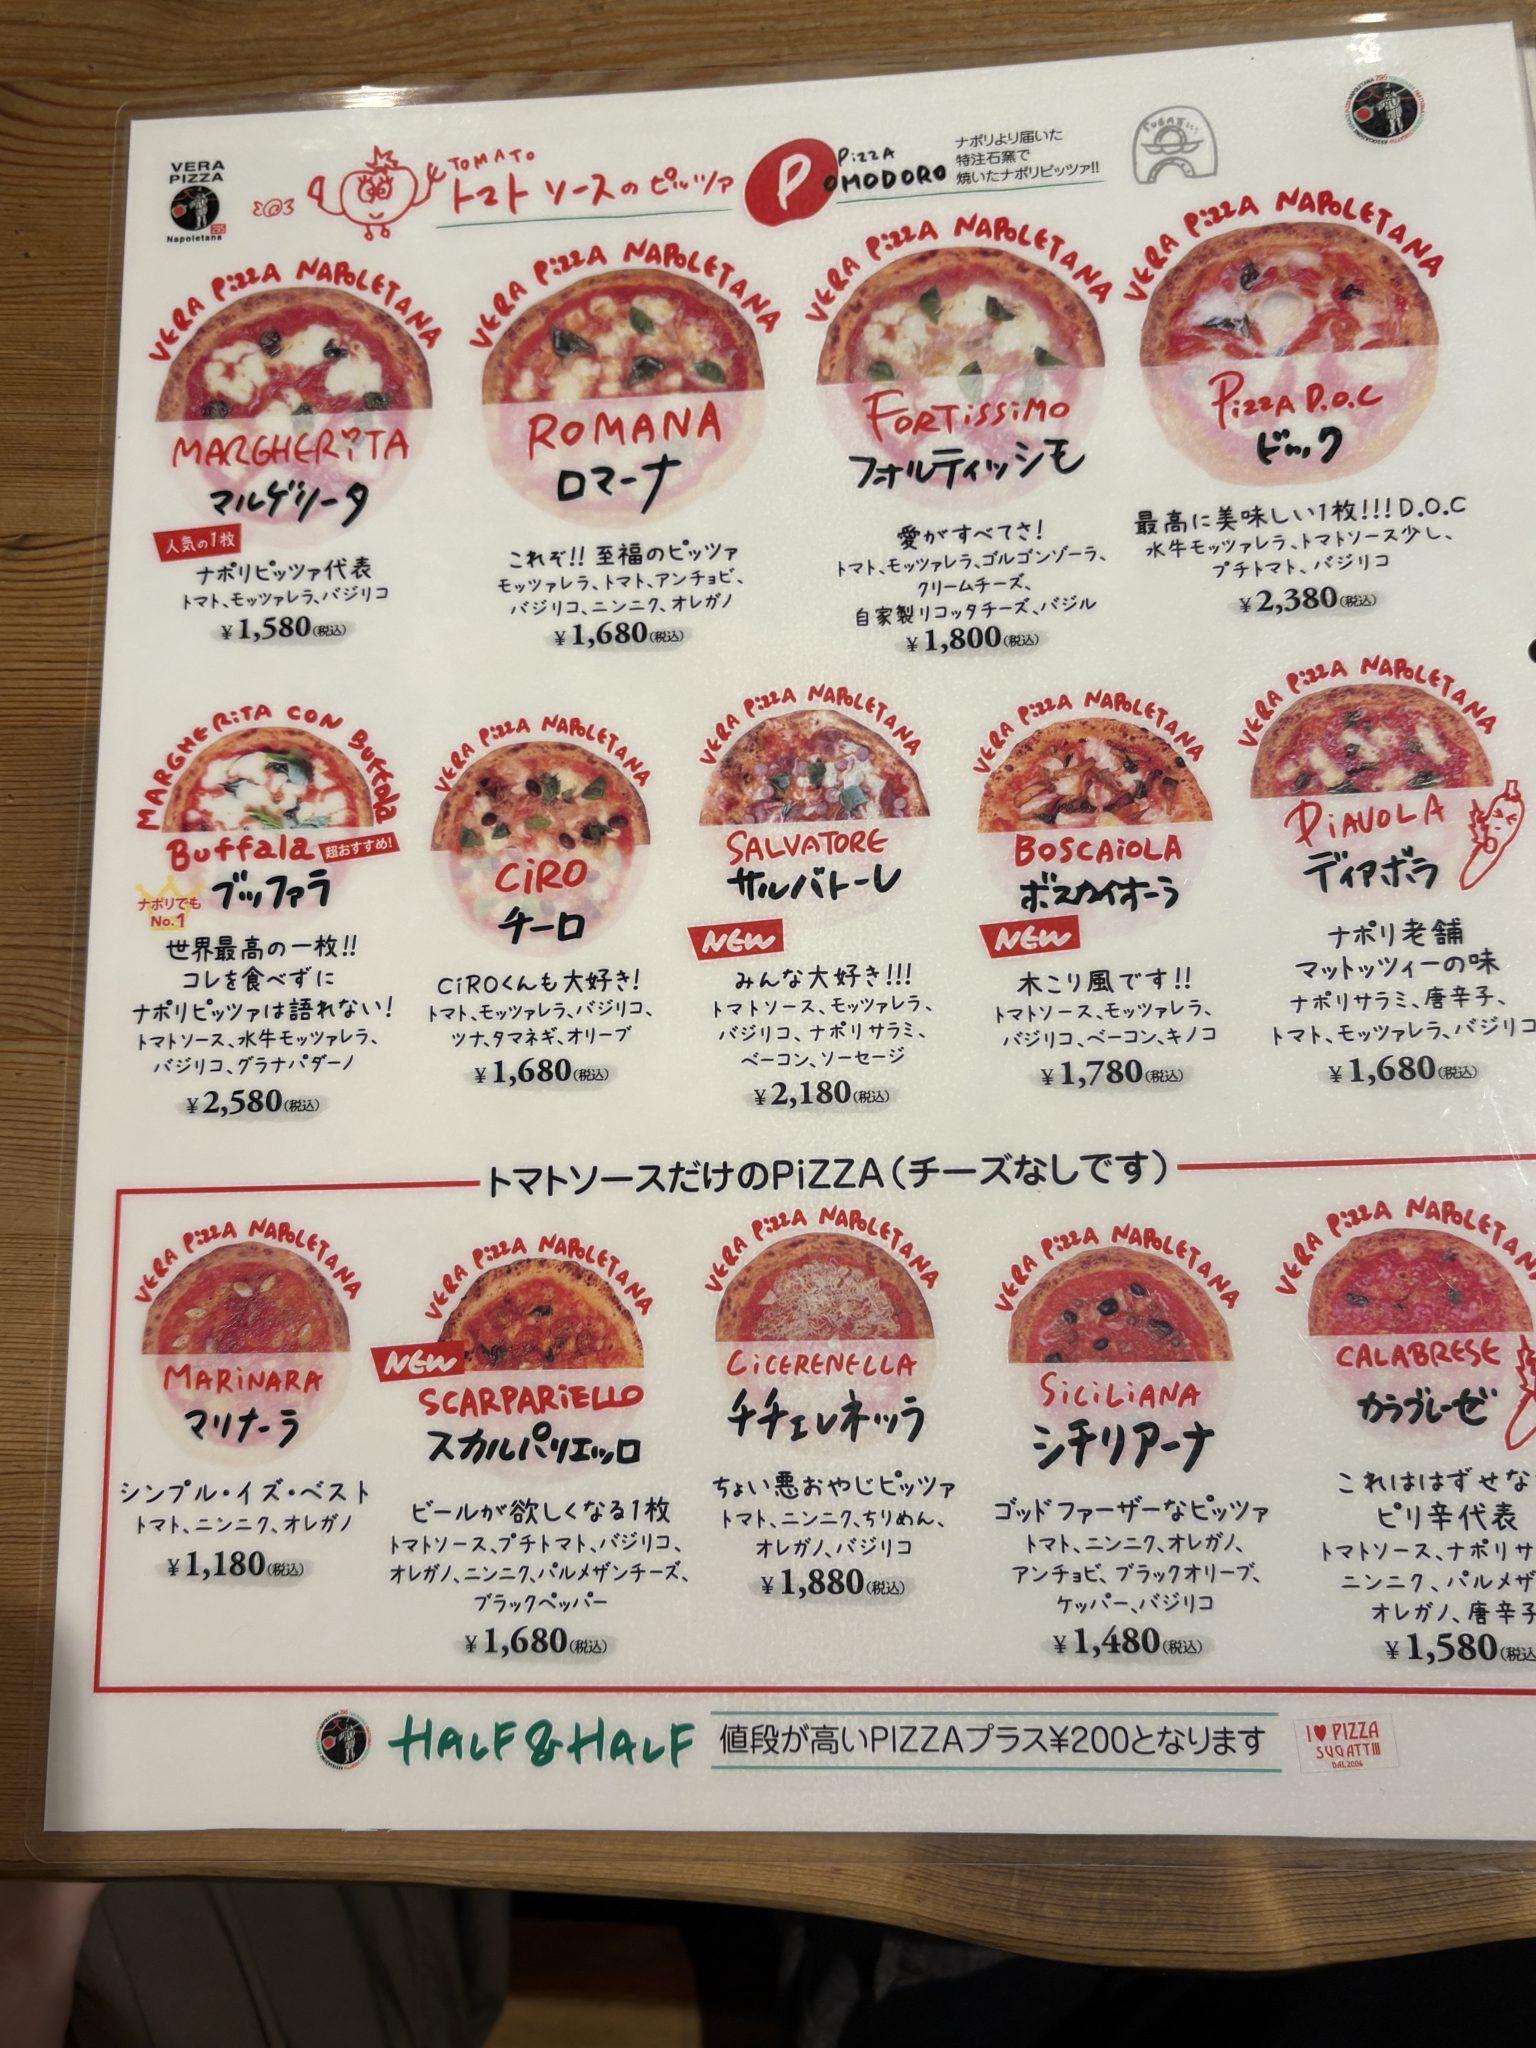 VERA
PIZZA
Napoletana
TOMATO
トマト ソースのピッツァ
PiZZA
POMODORO
ナポリより届いた
特注石窯で
焼いたナポリピッツァ!!
VERA PiZZA NAPOLETANA
MARGHERiTA
マルゲリータ
人気の1枚
ナポリピッツァ代表
トマト、モッツァレラ、バジリコ
¥1,580(税込)
VERA PiZZA NAPOLETANA
ROMANA
ロマーナ
これぞ!! 至福のピッツァ
モッツァレラ、トマト、アンチョビ、
バジリコ、ニンニク、オレガノ
¥1,680(税込)
VERA PiZZA NAPOLETANA
FORTiSSiMO
フォルティッシモ
愛がすべてさ!
トマト、モッツァレラ、ゴルゴンゾーラ、
クリームチーズ、
自家製リコッタチーズ、バジル
¥1,800(税込)
VERA PiZZA NAPOLETANA
PiZZA D.O.C
ドック
最高に美味しい1枚!!! D.O.C
水牛モッツァレラ、トマトソース少し、
プチトマト、バジリコ
¥2,380(税込)
MARGHERiTA CON Buffala
Buffala
超おすすめ!
ナポリでも
No.1
ブッファラ
世界最高の一枚!!
コレを食べずに
ナポリピッツァは語れない!
トマトソース、水牛モッツァレラ、
バジリコ、グラナパダーノ
¥2,580(税込)
VERA PiZZA NAPOLETANA
CiRO
チーロ
CiROくんも大好き!
トマト、モッツァレラ、バジリコ、
ツナ、タマネギ、オリーブ
¥1,680(税込)
VERA PiZZA NAPOLETANA
SALVATORE
サルバトーレ
NEW
みんな大好き!!!
トマトソース、モッツァレラ、
バジリコ、ナポリサラミ、
ベーコン、ソーセージ
¥2,180(税込)
VERA PiZZA NAPOLETANA
BOSCAiOLA
ボスカイオーラ
NEW
木こり風です!!
トマトソース、モッツァレラ、
バジリコ、ベーコン、キノコ
¥1,780(税込)
VERA PiZZA NAPOLETANA
DiAVOLA
ディアボラ
ナポリ老舗
マットッツィーの味
ナポリサラミ、唐辛子、
トマト、モッツァレラ、バジリコ
¥1,680(税込)
トマトソースだけのPiZZA(チーズなしです)
VERA PiZZA NAPOLETANA
MARiNARA
マリナーラ
シンプル・イズ・ベスト
トマト、ニンニク、オレガノ
¥1,180(税込)
VERA PiZZA NAPOLETANA
NEW
SCARPARiELLO
スカルパリエッロ
ビールが欲しくなる1枚
トマトソース、プチトマト、バジリコ、
オレガノ、ニンニク、パルメザンチーズ、
ブラックペッパー
¥1,680(税込)
VERA PiZZA NAPOLETANA
CiCERENELLA
チチェレネッラ
ちょい悪おやじピッツァ
トマト、ニンニク、ちりめん、
オレガノ、バジリコ
¥1,880(税込)
VERA PiZZA NAPOLETANA
SiCiLiANA
シチリアーナ
ゴッドファーザーなピッツァ
トマト、ニンニク、オレガノ、
アンチョビ、ブラックオリーブ、
ケッパー、バジリコ
¥1,480(税込)
VERA PiZZA NAPOLETANA
CALABRESE
カラブレーゼ
これははずせな
ピリ辛代表
トマトソース、ナポリサ
ニンニク、パルメザ
オレガノ、唐辛子
¥1,580(税込
HALF & HALF
値段が高いPIZZAプラス¥200となります
I ♥ PIZZA
SUGATTIII
DAL2006